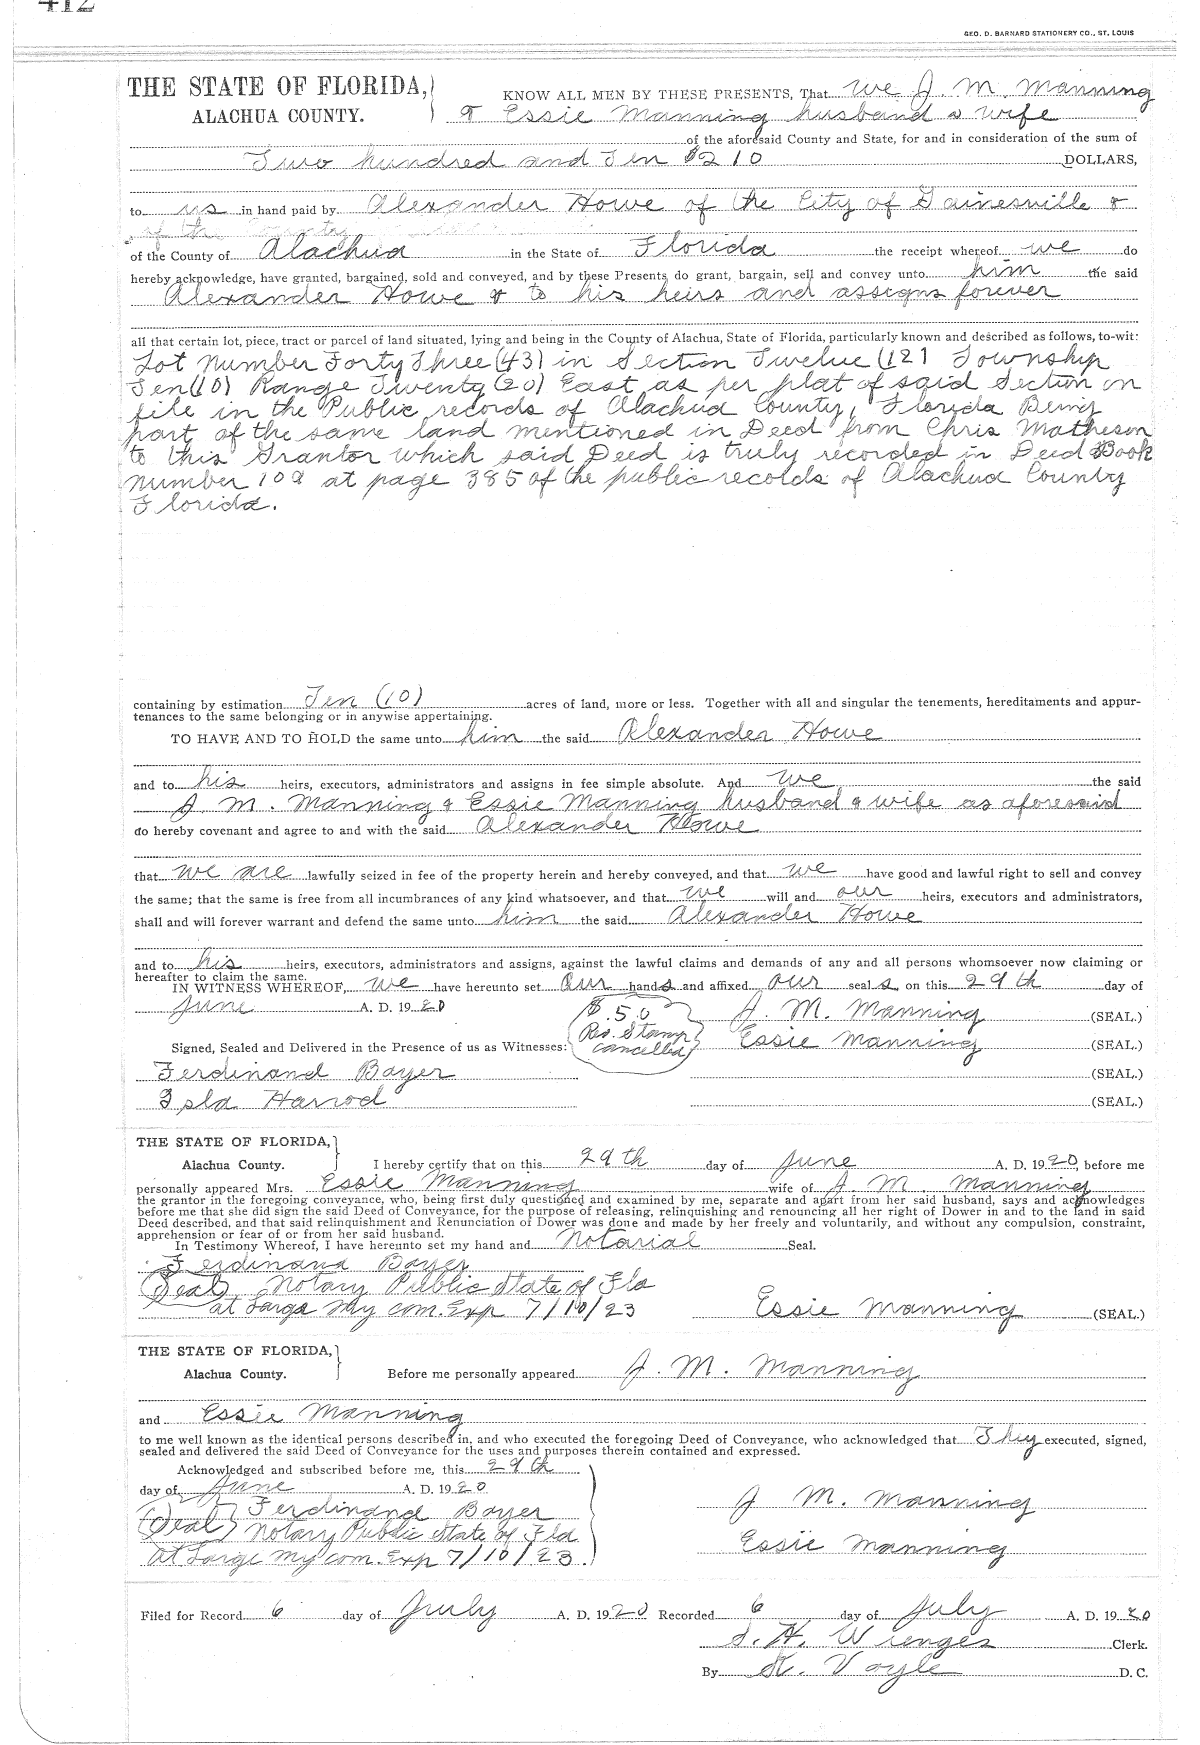 412
GEO. D. BARNARD STATIONERY CO., ST. LOUIS
THE STATE OF FLORIDA, KNOW ALL MEN BY THESE PRESENTS, That we J. M. Manning
ALACHUA COUNTY. & Essie Manning husband & wife
of the aforesaid County and State, for and in consideration of the sum of
Two hundred and Ten $210 DOLLARS,
to us in hand paid by Alexander Howe of the City of Gainesville &
of the County
of the County of Alachua in the State of Florida the receipt whereof we do
hereby acknowledge, have granted, bargained, sold and conveyed, and by these Presents do grant, bargain, sell and convey unto him the said
Alexander Howe & to his heirs and assigns forever
all that certain lot, piece, tract or parcel of land situated, lying and being in the County of Alachua, State of Florida, particularly known and described as follows, to-wit:
Lot Number Forty Three (43) in Section Twelve (12) Township
Ten (10) Range Twenty (20) East as per plat of said Section on
file in the Public records of Alachua County, Florida Being
part of the same land mentioned in Deed from Chris Matheson
to this Grantor which said Deed is truly recorded in Deed Book
Number 109 at page 385 of the public records of Alachua County
Florida.
containing by estimation Ten (10) acres of land, more or less. Together with all and singular the tenements, hereditaments and appur-
tenances to the same belonging or in anywise appertaining.
TO HAVE AND TO HOLD the same unto him the said Alexander Howe
and to his heirs, executors, administrators and assigns in fee simple absolute. And we the said
J. M. Manning & Essie Manning husband & wife as aforesaid
do hereby covenant and agree to and with the said Alexander Howe
that we are lawfully seized in fee of the property herein and hereby conveyed, and that we have good and lawful right to sell and convey
the same; that the same is free from all incumbrances of any kind whatsoever, and that we will and our heirs, executors and administrators,
shall and will forever warrant and defend the same unto him the said Alexander Howe
and to his heirs, executors, administrators and assigns, against the lawful claims and demands of any and all persons whomsoever now claiming or
hereafter to claim the same.
IN WITNESS WHEREOF, we have hereunto set our hands and affixed our seal s on this 29th day of
June A. D. 1920 $.50 J. M. Manning (SEAL.)
Rev. Stamp
Signed, Sealed and Delivered in the Presence of us as Witnesses: cancelled Essie Manning (SEAL.)
Ferdinand Bayer (SEAL.)
Isla Harrod (SEAL.)
THE STATE OF FLORIDA,
Alachua County. I hereby certify that on this 29th day of June A. D. 1920 before me
personally appeared Mrs. Essie Manning wife of J. M. Manning
the grantor in the foregoing conveyance, who, being first duly questioned and examined by me, separate and apart from her said husband, says and acknowledges
before me that she did sign the said Deed of Conveyance, for the purpose of releasing, relinquishing and renouncing all her right of Dower in and to the land in said
Deed described, and that said relinquishment and Renunciation of Dower was done and made by her freely and voluntarily, and without any compulsion, constraint,
apprehension or fear of or from her said husband.
In Testimony Whereof, I have hereunto set my hand and Notarial Seal.
Ferdinand Bayer
(Seal) Notary Public State of Fla
at Large My com. Exp 7/10/23 Essie Manning (SEAL.)
THE STATE OF FLORIDA,
Alachua County. Before me personally appeared J. M. Manning
and Essie Manning
to me well known as the identical persons described in, and who executed the foregoing Deed of Conveyance, who acknowledged that They executed, signed,
sealed and delivered the said Deed of Conveyance for the uses and purposes therein contained and expressed.
Acknowledged and subscribed before me, this 29th
day of June A. D. 1920
Ferdinand Bayer J M. Manning
(Seal) Notary Public State of Fla
At Large My com. Exp 7/10/23 Essie Manning
Filed for Record 6 day of July A. D. 1920 Recorded 6 day of July A. D. 1920
S. H. Wienges Clerk.
By K. Voyle D. C.